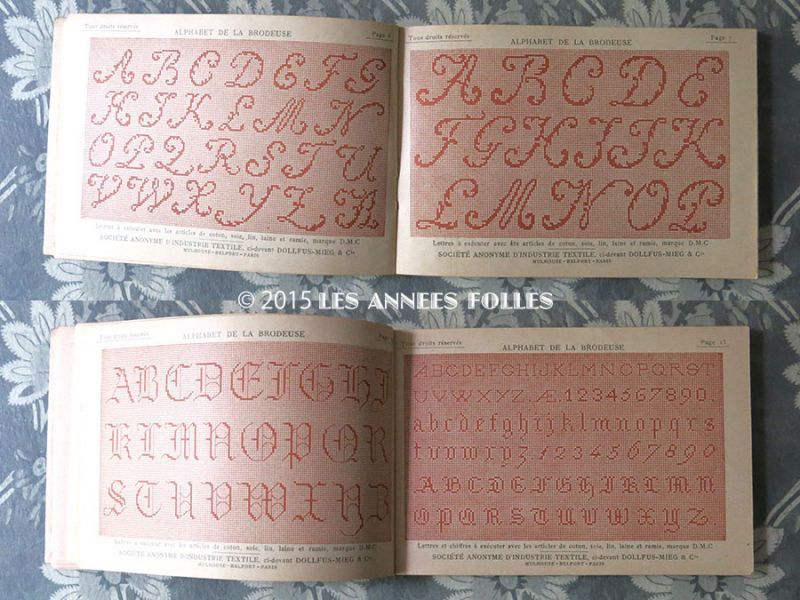 Tous droits réservés
ALPHABET DE LA BRODEUSE
Page 6
A B C D E F G
H I J K L M N
O P Q R S T U
V W X Y Z &
Lettres à exécuter avec les articles de coton, soie, lin, laine et ramie, marque D.M.C
SOCIÉTÉ ANONYME D'INDUSTRIE TEXTILE, ci-devant DOLLFUS-MIEG & Cie
MULHOUSE-BELFORT-PARIS
Tous droits réservés
ALPHABET DE LA BRODEUSE
Page 7
A B C D E
F G H I J K
L M N O P
Lettres à exécuter avec les articles de coton, soie, lin, laine et ramie, marque D.M.C
SOCIÉTÉ ANONYME D'INDUSTRIE TEXTILE, ci-devant DOLLFUS-MIEG & Cie
MULHOUSE-BELFORT-PARIS
© 2015 LES ANNEES FOLLES
Tous droits réservés
ALPHABET DE LA BRODEUSE
Page
A B C D E F G H I
K L M N O P Q R
S T U V W X Y Z
Lettres à exécuter avec les articles de coton, soie, lin, laine et ramie, marque D.M.C
SOCIÉTÉ ANONYME D'INDUSTRIE TEXTILE, ci-devant DOLLFUS-MIEG & Cie
MULHOUSE-BELFORT-PARIS
Tous droits réservés
ALPHABET DE LA BRODEUSE
Page
ABCDEFGHIJKLMNOPQRST
UVWXYZ.Æ.1234567890.
abcdefghijklmnopqrs
tuvwxyz.1234567890
ABCDEFGHIJKLMN
OPQRSTUVWXYZ.
Lettres et chiffres à exécuter avec les articles de coton, soie, lin, laine et ramie, marque D.M.C
SOCIÉTÉ ANONYME D'INDUSTRIE TEXTILE, ci-devant DOLLFUS-MIEG & Cie
MULHOUSE-BELFORT-PARIS